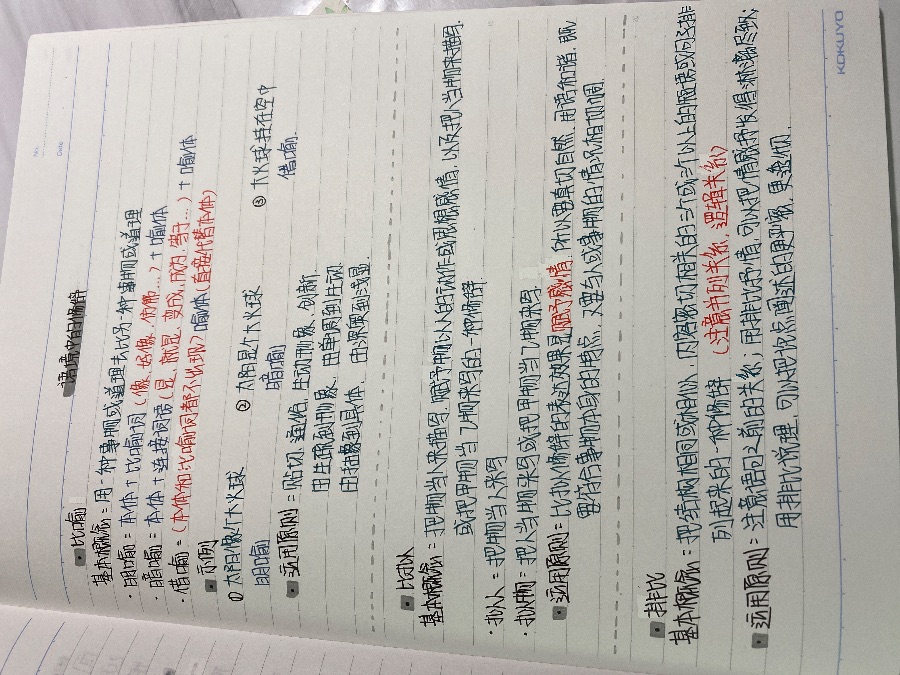 No.
Date
语境中的修辞
▪ 比喻
基本概念 = 用一种事物或道理去比另一种事物或道理
· 明喻 = 本体 + 比喻词 (像、好像、仿佛...) + 喻体
· 暗喻 = 本体 + 连接词语 (是、就是、变成、成为、等于...) + 喻体
· 借喻 = (本体和比喻词都不出现) 喻体 (直接代替本体)
▪ 示例
① 太阳像个大火球 ② 太阳是个大火球 ③ 大火球挂在空中
明喻 暗喻 借喻
▪ 运用原则 = 贴切、通俗、生动形象、创新
由生疏到形象、由单调到生动
由抽象到具体、由深奥到浅显
▪ 比拟
基本概念 = 把物当人来描写, 赋予物以人的动作或思想感情, 以及把人当物来描写,
或把甲物当乙物来写的一种修辞.
· 拟人 = 把物当人来写
· 拟物 = 把人当物来写或把甲物当乙物来写.
▪ 运用原则 = 比拟修辞的表达效果是赋予感情, 所以要真切自然、用语和谐、既
要符合事物本身的特点, 又要与人或事物的情况相协调.
▪ 排比
基本概念 = 把结构相同或相似、内容密切相关的三个或三个以上的短语或句子排
列起来的一种修辞 (注意并列关系, 逻辑关系)
▪ 运用原则 = 注意语句之前的关系; 用排比抒情, 可以把情感抒发得淋漓尽致;
用排比说理, 可以把观点阐述的更严密、更透彻.
KOKUYO